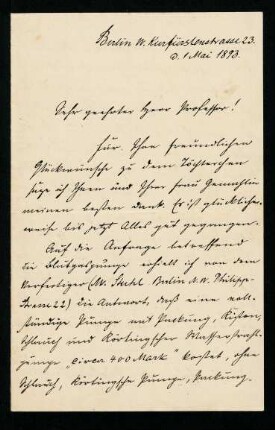 Berlin W. Kurfürstenstrasse 23.
d. 1 Mai 1893.
Sehr geehrter Herr Professor!
Für Ihre freundlichen
Glückwünsche zu dem Töchterchen
sage ich Ihnen und Ihrer Frau Gemahlin
meinen besten Dank. Es ist glücklicher-
weise bis jetzt Alles gut gegangen.
Auf die Anfrage betreffend
die erhielt ich von dem
Verfertiger (W. Stehl Berlin N.W. Philipp-
strasse 22) die Antwort, daß eine voll-
ständige Pumpe mit Packung, Kisten,
Schlauch und Körtingscher Wasserstrahl-
pumpe "circa 400 Mark" kostet, ohne
Schlauch, Körtingsche Pumpe, Packung